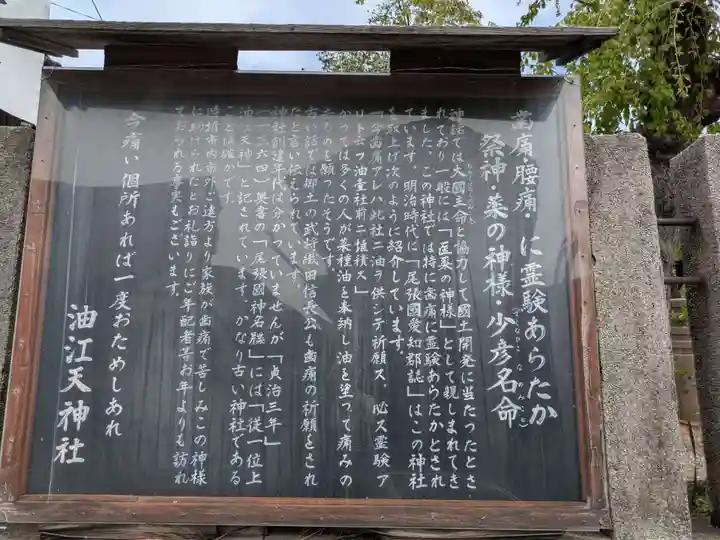 歯痛・腰痛・に霊験あらたか
祭神・薬の神様・少彦名命
神話では大國主命と協力して國土開発に当たったとさ
れており一般には「医薬の神様」として親しまれてき
ました。この神社では特に歯痛に霊験あらたかとされ
ています。明治時代に「尾張國愛知郡誌」はこの神社
を取上げ次のように紹介しています。
歯痛アレハ此社ニ油ヲ供シテ祈願ス、必ス霊験ア
リト云フ油壷社前ニ堆積ス」
かつては多くの人が菜種油を奉納し油を塗って痛みの
を願ったそうです。
古い話では郷土の武将織田信長公も歯痛の祈願をされ
たと言い伝えられています。
神社創建年代は分かっていませんが「貞治三年」
(一三六四)奥書の「尾張國神名牒」には「従一位上
油江天神」と記されています。かなり古い神社である
ことは確かです。
時折市内市外ご遠方より家族が歯痛で苦しみこの神様
にあげられたとお礼詣りにご年配者等お年よりも訪れ
ておられる事実もございます。
今痛い個所あれば一度おためしあれ
油江天神社